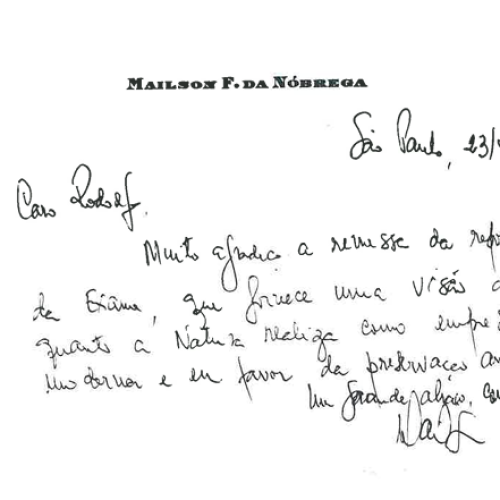 MAILSON F. DA NÓBREGA
São Paulo, 23/
Caro Rodolf.
Muito agradeço a remessa da
da Exame, que fornece uma visão
quanto a Natura realiza como
modernos e em favor da preservação
Um grande abraço,